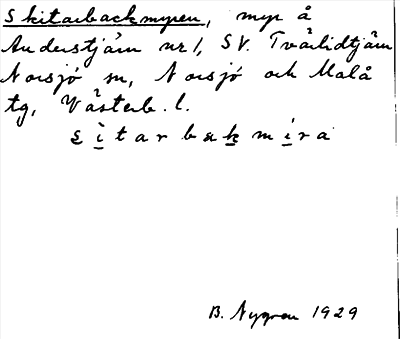 Skitarbackmyren, myr å
Anderstjärn nr 1, SV. Tvärlidtjärn
Norsjö sn, Norsjö och Malå
tg, Västerb. l.
s̲i̲tarbak̲mi̲ra
B. Nygren 1929